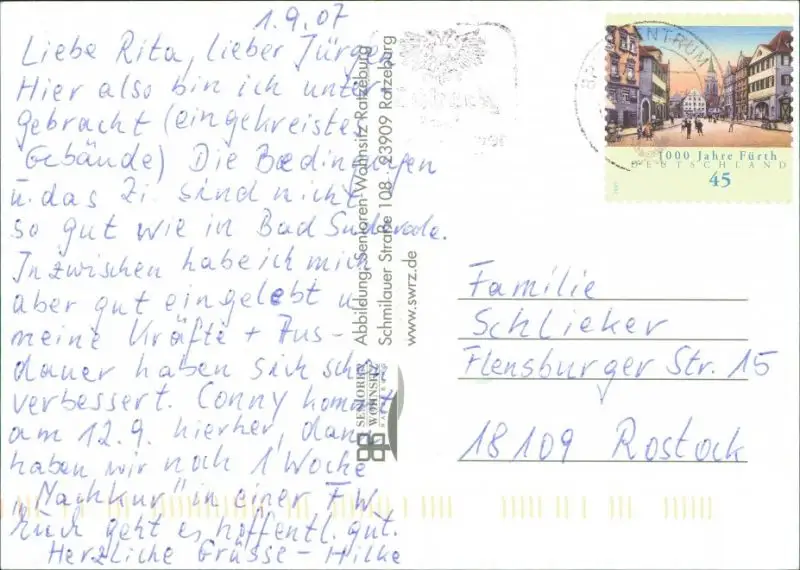 1.9.07
Liebe Rita, lieber Jürgen,
Hier also bin ich unter
gebracht (eingekreister
Gebäude) Die Bedinungen
u. das Zi. sind nicht
so gut wie in Bad Suderode.
Inzwischen habe ich mich
aber gut eingelebt u
meine Kräfte + Aus-
dauer haben sich schon
verbessert. Conny kommt
am 12.9. hierher, dann
haben wir noch 1 Woche
„Nachkur" in einer FW.
Euch geht es hoffentl. gut.
Herzliche Grüsse - Hilke
Abbildung: Senioren Wohnsitz Ratzeburg
Schmilauer Straße 108 · 23909 Ratzeburg
www.swrz.de
SENIOREN
WOHNSITZ
RATZEBURG
1000 Jahre Fürth
DEUTSCHLAND
45
Familie
Schlieker
Flensburger Str. 15
18109 Rostock